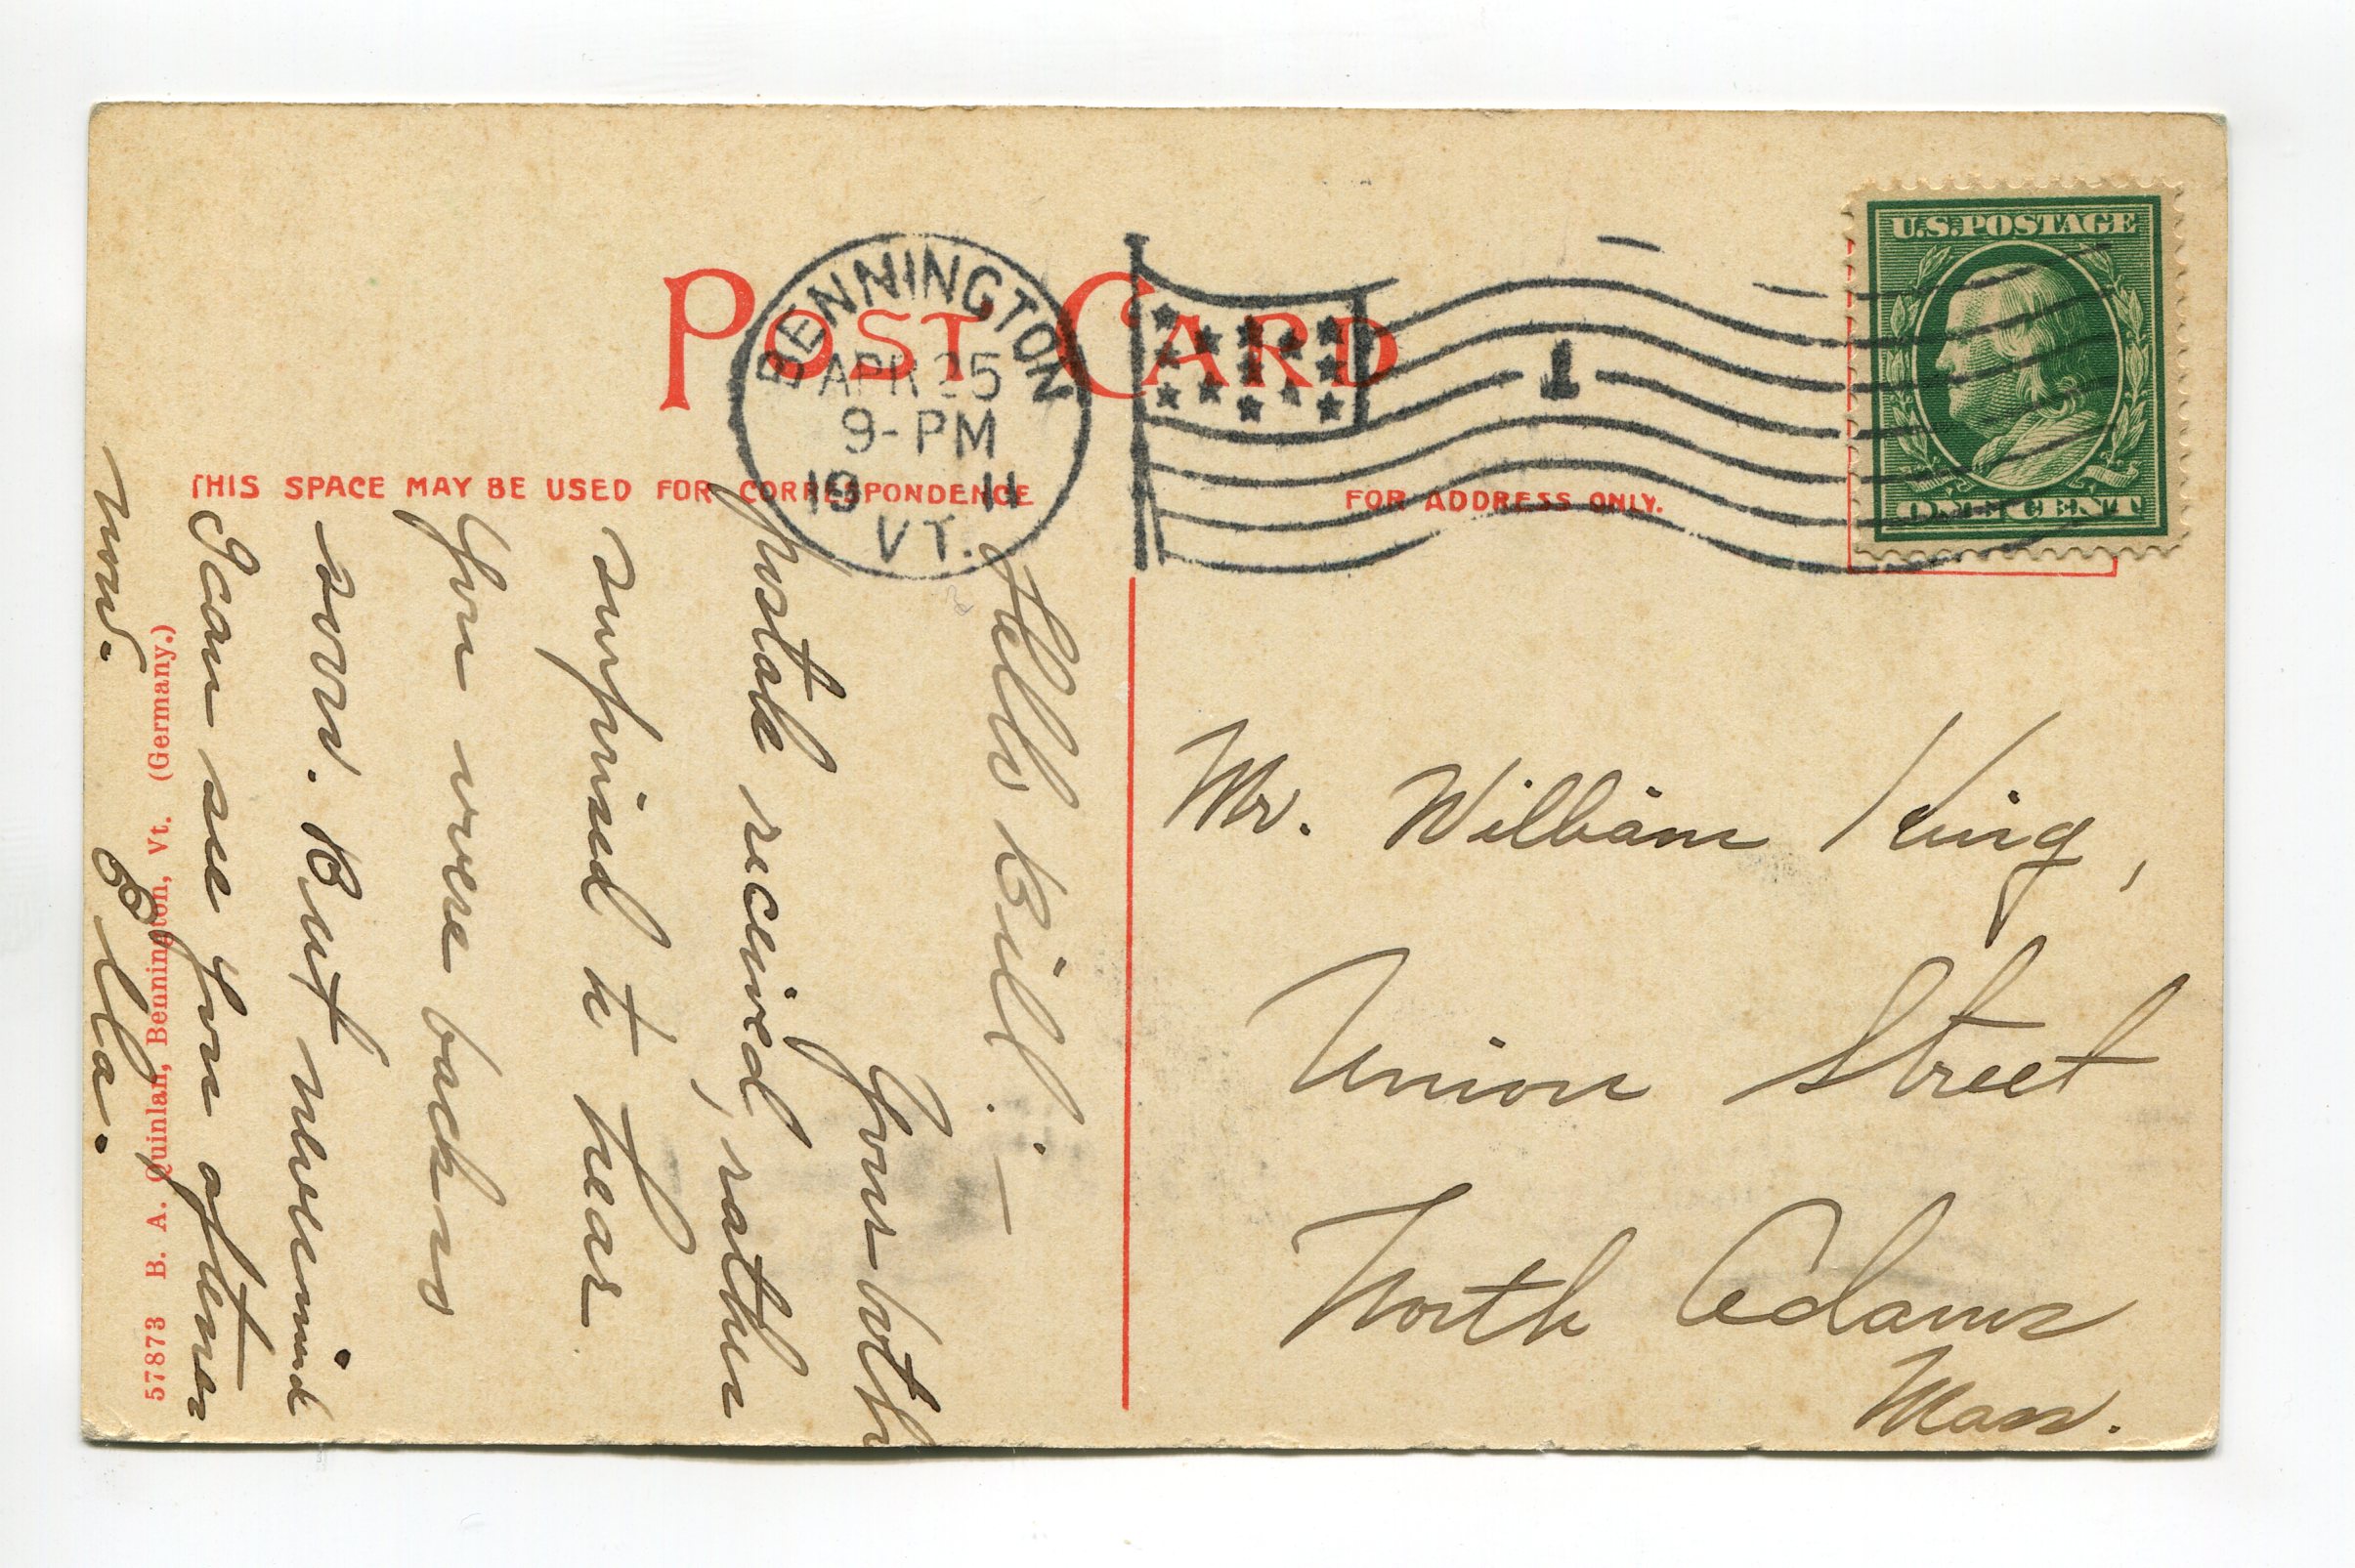 POST CARD
BENNINGTON
APR 25
9-PM
19 11
VT.
1
U.S. POSTAGE
ONE CENT
THIS SPACE MAY BE USED FOR CORRESPONDENCE
FOR ADDRESS ONLY.
Hello Bill:—
Your both
postals received, rather
surprised to hear
you were back so
soon. But nevermind
I can see you oftener
now.
Ella.
Mr. William King,
Union Street
North Adams
Mass.
57873 B. A. Quinlan, Bennington, Vt. (Germany.)